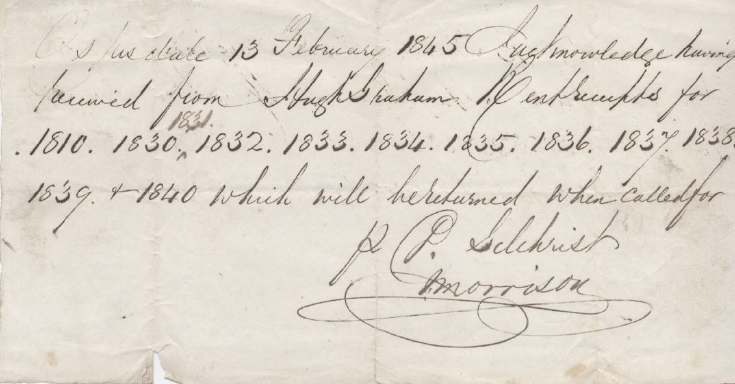 this date 13 February 1845 I acknowledge having
received from Hugh Graham Rent receipts for
1810. 1830. 1831. 1832. 1833. 1834. 1835. 1836. 1837. 1838.
1839. + 1840 which will be returned when called for
P. Gilchrist
Morrison